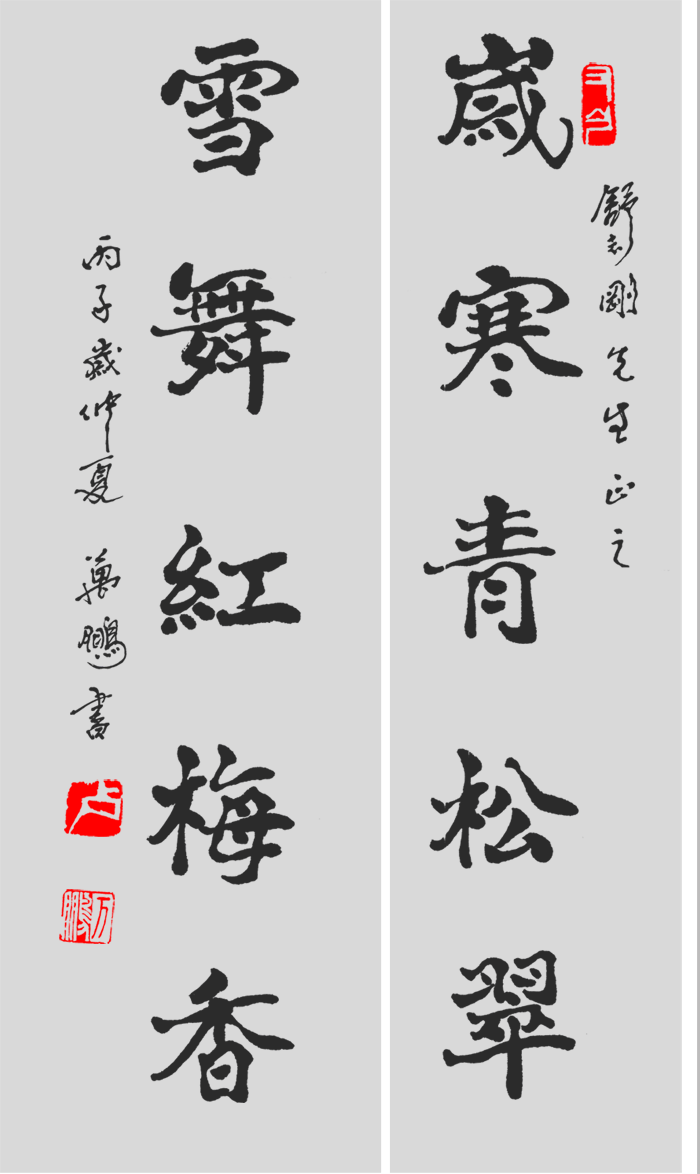 歲寒青松翠
舒彭志剛先生正之
雪舞紅梅香
丙子歲仲夏 萬鵬書
占
万鹏